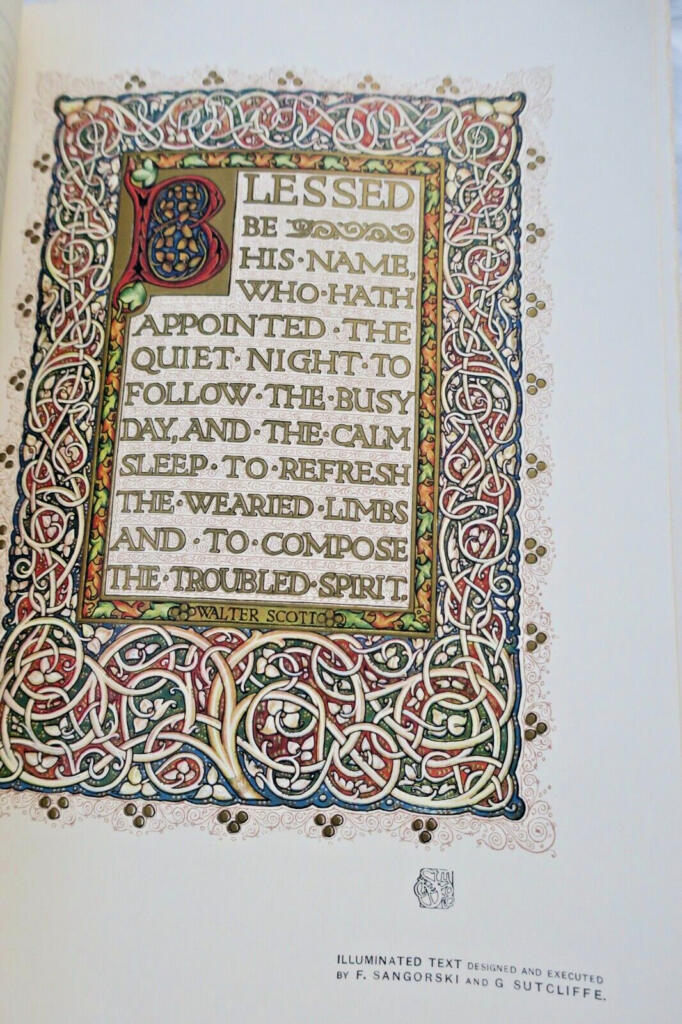 BLESSED
BE
HIS·NAME,
WHO·HATH
APPOINTED·THE
QUIET·NIGHT·TO
FOLLOW·THE·BUSY
DAY, AND·THE·CALM
SLEEP·TO·REFRESH
THE·WEARIED·LIMBS
AND·TO·COMPOSE
THE·TROUBLED·SPIRIT.
WALTER SCOTT
ILLUMINATED TEXT DESIGNED AND EXECUTED
BY F. SANGORSKI AND G SUTCLIFFE.